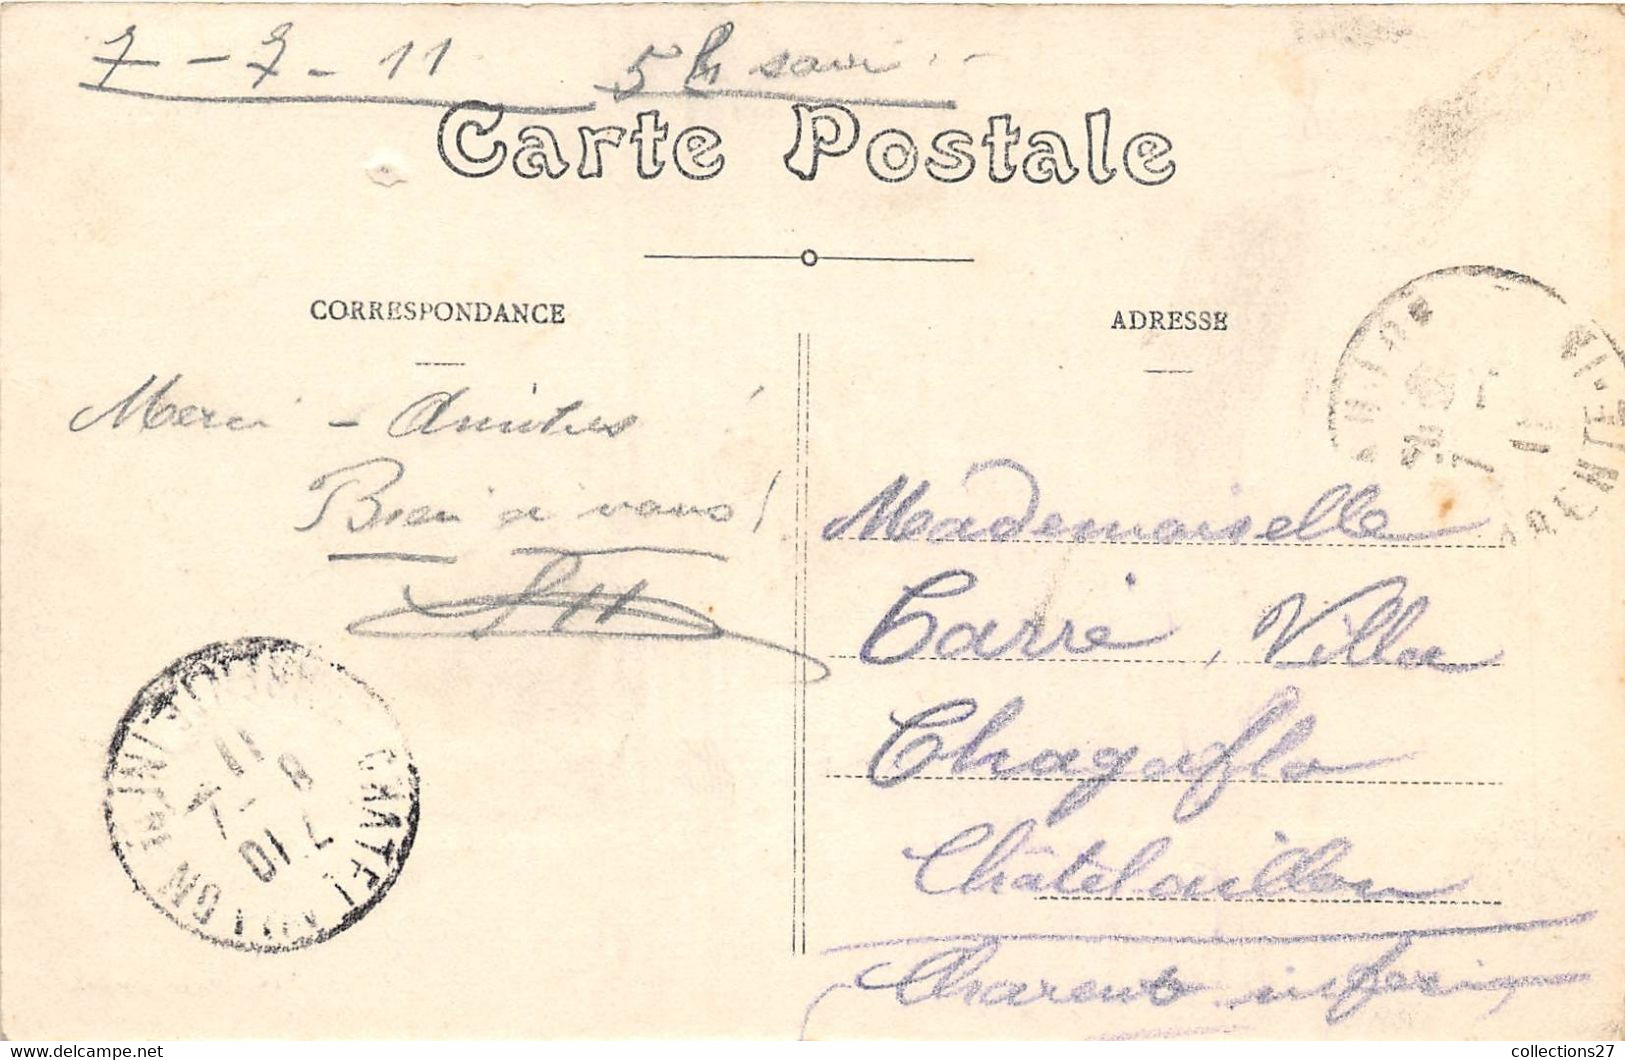 7 - 7 - 11 5h soir
Carte Postale
CORRESPONDANCE
ADRESSE
Merci - Amitiés !
Bien à vous !
Mademoiselle
Carré, Villa
Chagaflo
Châtelaillon
Charente inférie
CHATELAILLON
11
8 - 7
7 11
collections27